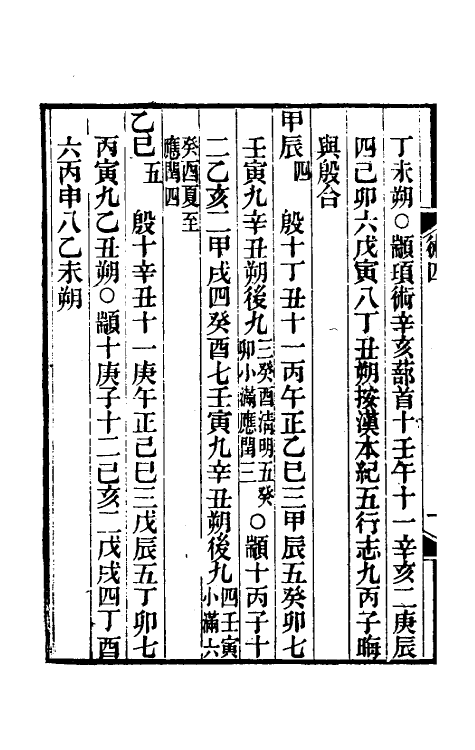 丁未朔○顓頊術辛亥蔀首十壬午十一辛亥二庚辰
四己卯六戊寅八丁丑朔按漢本紀五行志九丙子晦
與殷合
甲辰四　殷十丁丑十一丙午正乙巳三甲辰五癸卯七
壬寅九辛丑朔後九三癸酉清明五癸卯小滿應閏三○顓十丙子十
二乙亥二甲戌四癸酉七壬寅九辛丑朔後九四壬寅小滿六
癸酉夏至應閏四
乙巳五　殷十辛丑十一庚午正己巳三戊辰五丁卯七
丙寅九乙丑朔○顓十庚子十二己亥二戊戌四丁酉
六丙申八乙未朔
術四